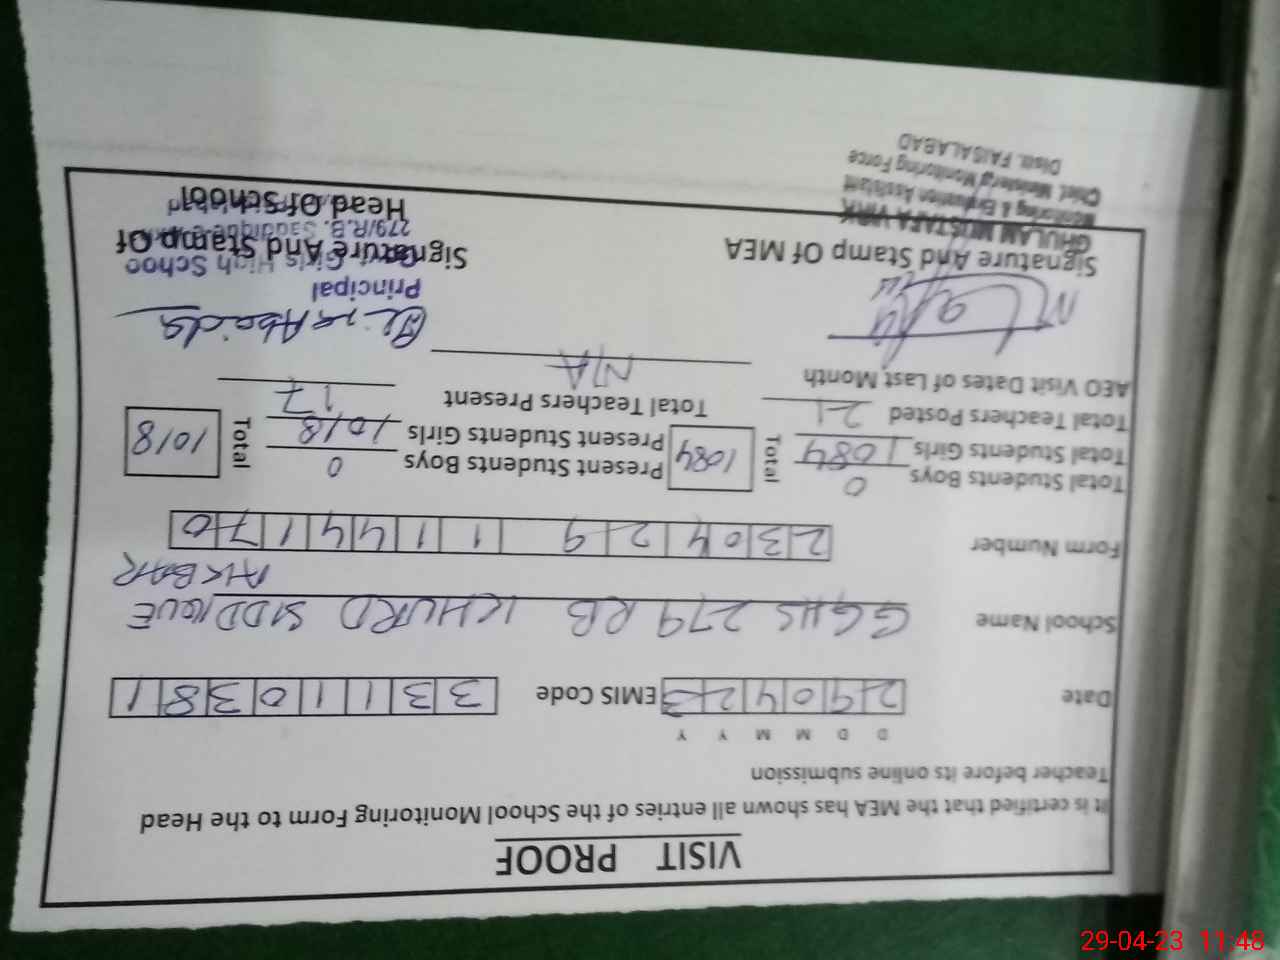 VISIT PROOF
It is certified that the MEA has shown all entries of the School Monitoring Form to the Head
Teacher before its online submission
D D M M Y Y
Date 290423 EMIS Code 33110381
School Name GGHS 279 RB KHURD SIDDIQUE
AKBAR
Form Number 2304 29 1 1441 70
Total Students Boys 0 Present Students Boys 0
Total Students Girls 1084 Total 1084 Present Students Girls 1018 Total 1018
Total Teachers Posted 21 Total Teachers Present 17
AEO Visit Dates of Last Month N/A
Principal
Govt Girls High Schoo
Signature And Stamp Of MEA Signature And Stamp Of
Head Of School
279/R.B.
GHULAM MUSTAFA VIRK
Monitoring & Evaluation Assistant
Chief Minister's Monitoring Force
Distt. FAISALABAD
29-04-23 11:48